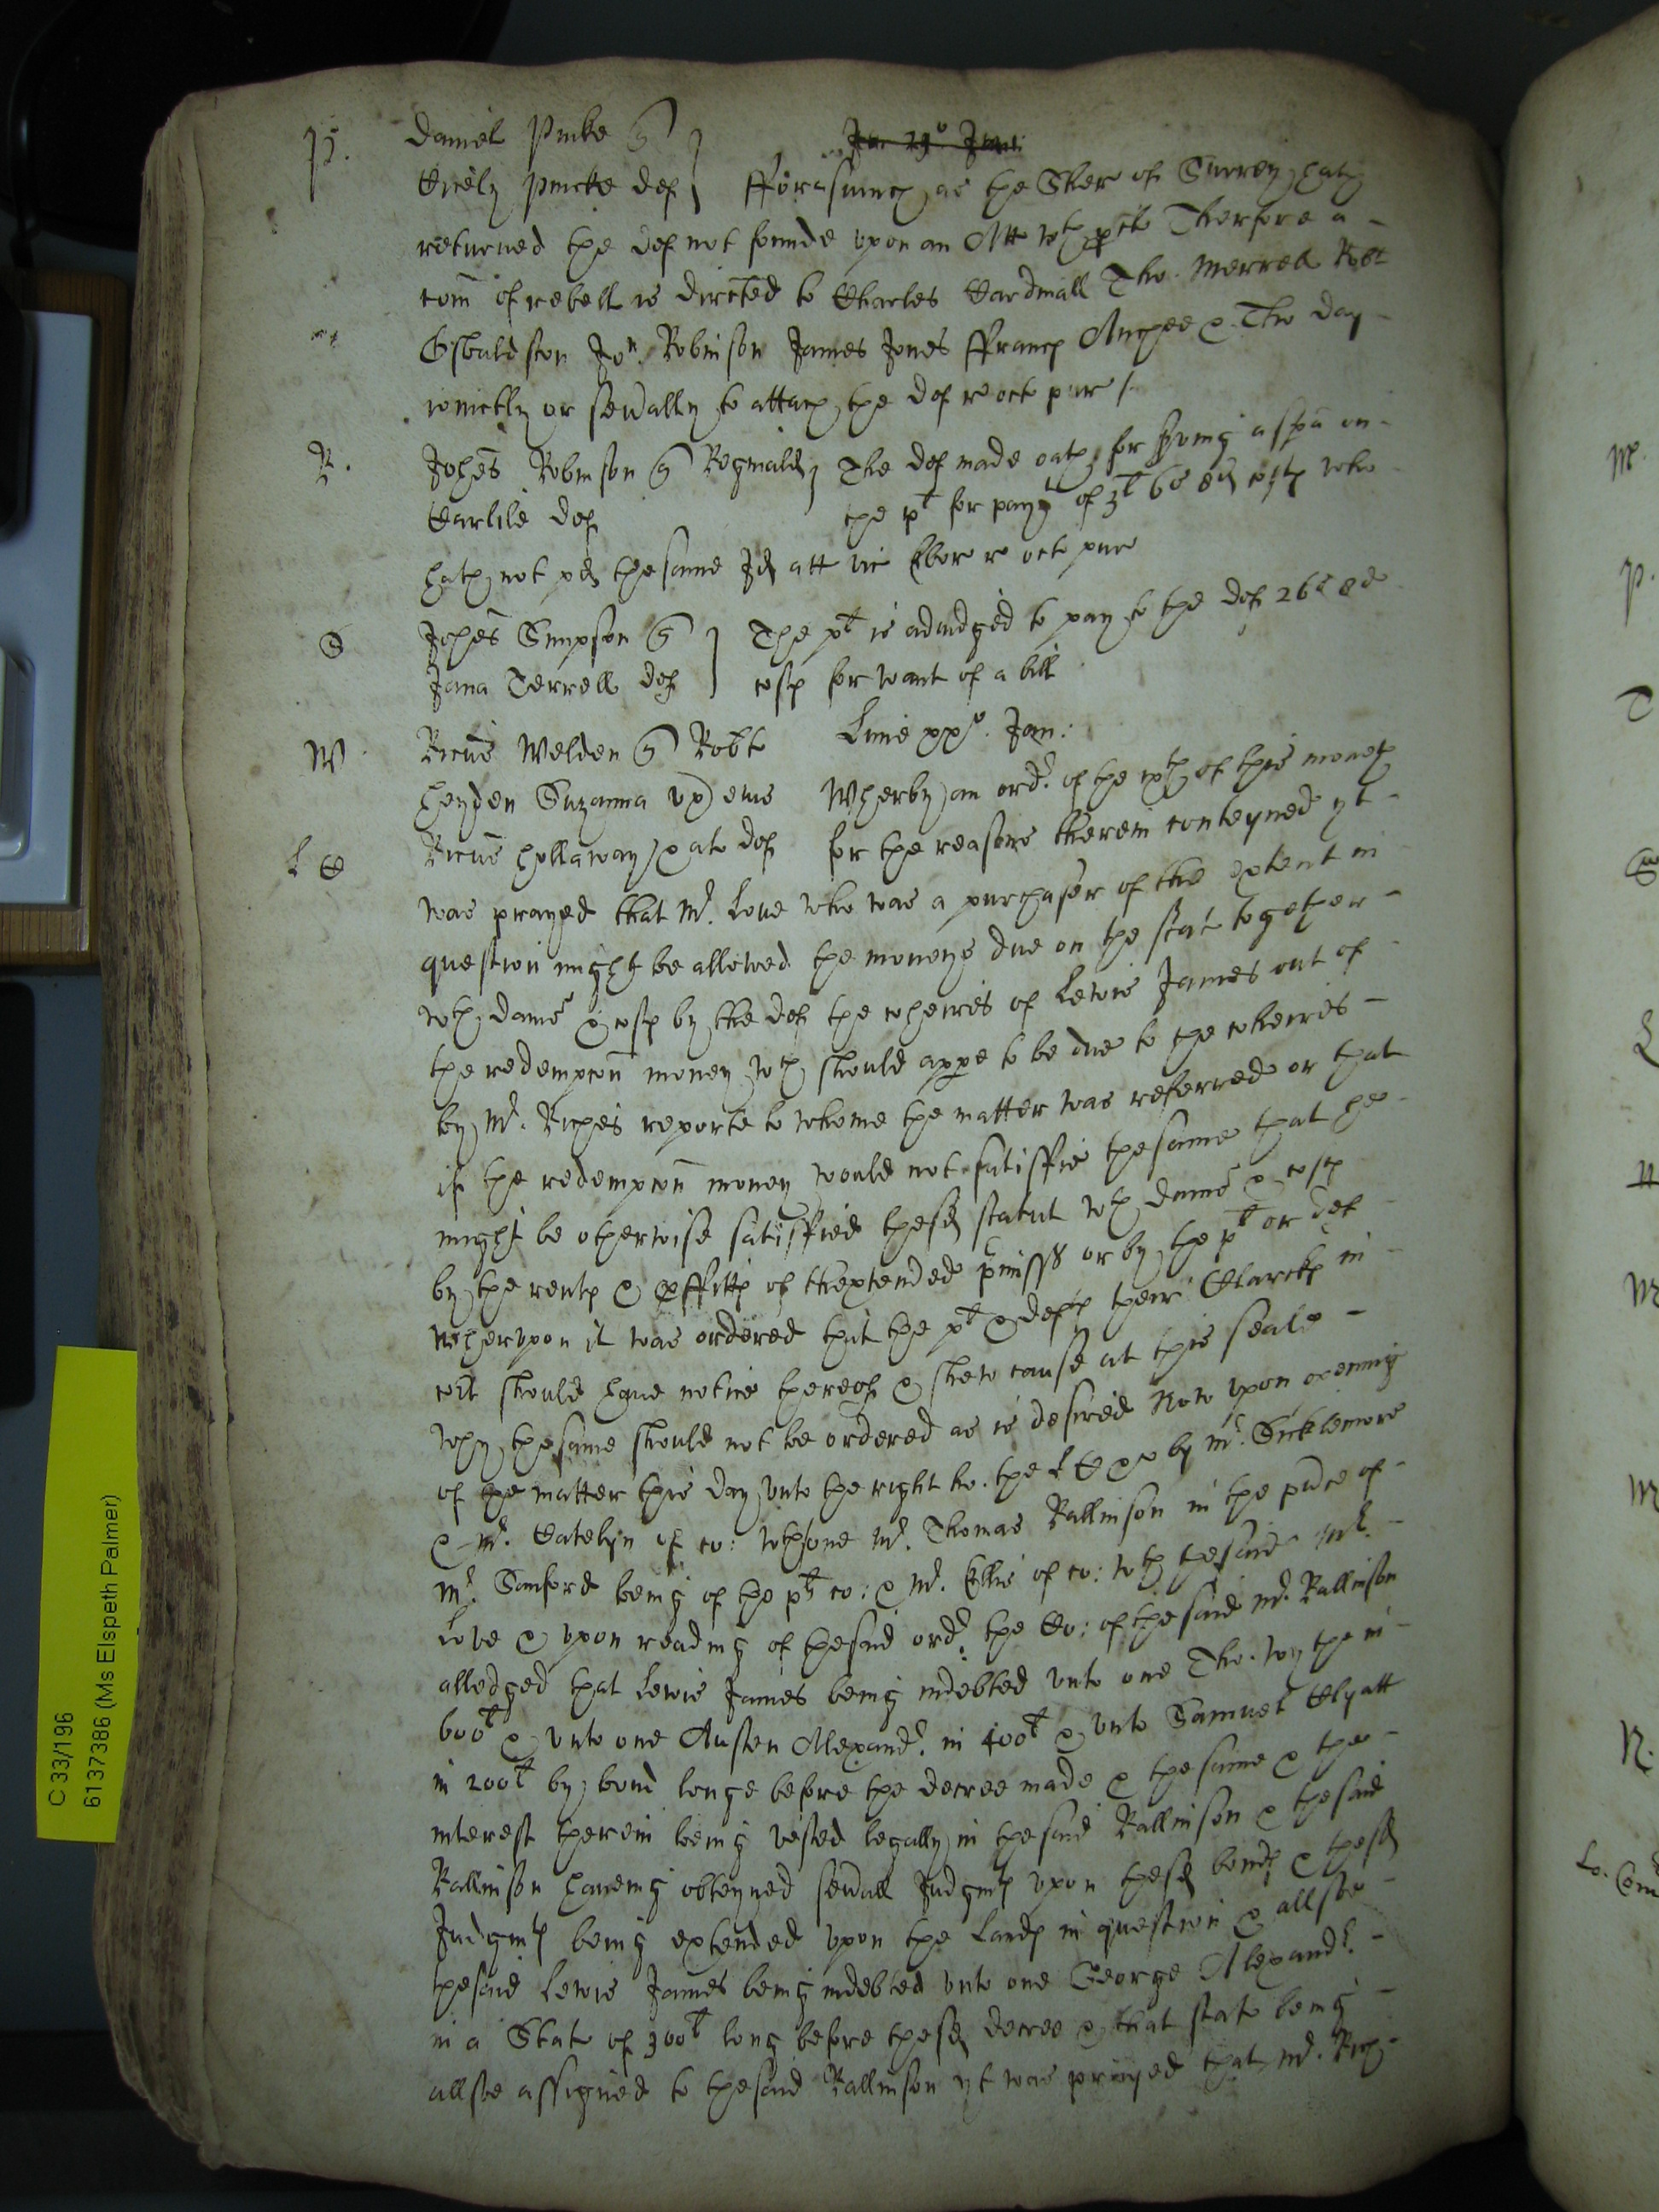 P.
Daniel Pinke q
Jov 29º Jan:
Cicely Pincke def } fforasmuch as the Sher of Surrey hath
returned the def not founde upon an Att wth pcte Therfore a -
com of rebell is directed to Charles Tho. Merrell Robt
Jon. Robinson James Jones ffranc & Tho Day -
ioinctly or sevally to attach the def re octo pur /.
R.
Johes Robinson q Reginald } The def made oath for sving a spa on -
Carlile def the plt for paymt of 3l 6s 8d costs who
hath not pd the same Id att vic Ebor re octo pure
S
Johes Simpson q } The plt is adiudged to pay to the def 26s 8d
Jana Terrell def } costs for want of a bill
W.
Ricus Welden q Robt
Lune xxxº. Jan:
heyden Suzanna ux eius Wherby an ordr. of the xth of this moneth
L C
Ricus hollaway & ats def for the reasons therein conteyned yt -
was prayed that Mr. Love who was a purchaser of the extent in
question might be allowed the moneys due on the stat together -
wth dams & costs by the def the coheires of Lewis James out of
the redempcon money wch should appe to be due to the coheires -
by Mr. Riches reporte to whome the matter was referred or that
if the redempcon money would not satisffie the same that he -
might be otherwise satisffied thesd statut wth dams & costs
by the rents & pffitts of thextended pmisss or by the plt or def -
wherupon it was ordered that the plt & defts their Clarcks in -
cort should have notice thereof & shew cause at this seale -
why the same should not be ordered as is desired Now upon opening
of the matter this day unto the right ho. the L C by Mr. Sicklemore
& Mr. Catelyn of co: wth one Mr. Thomas Rallinson in the place of -
Mr. Sanford being of the plts co: & Mr. Ellis of co: wth the said Mr. -
Love & upon reading of the said ordr. the Co: of the said Mr. Rallinson
alledged that Lewis James being indebted unto one Tho. in -
600l & unto one Austen Alexandr. in 400l & unto Samuel Clyatt
in 200l by bond longe before the decree made & the same & the -
interest therein being vested legally in the said Rallinson & the said
Rallinson haveing obteyned sevall Judgmts upon thesd bonds & thesd
Judgmts being extended upon the lands in question & allsoe -
the said Lewis James being indebted unto one George Alexandr. -
in a Stat of 300l long before thesd decree & that stat being -
allsoe assigned to the said Rallinson yt was prayed that Mr. Rich -
C 33/196
6137386 (Ms Elspeth Palmer)